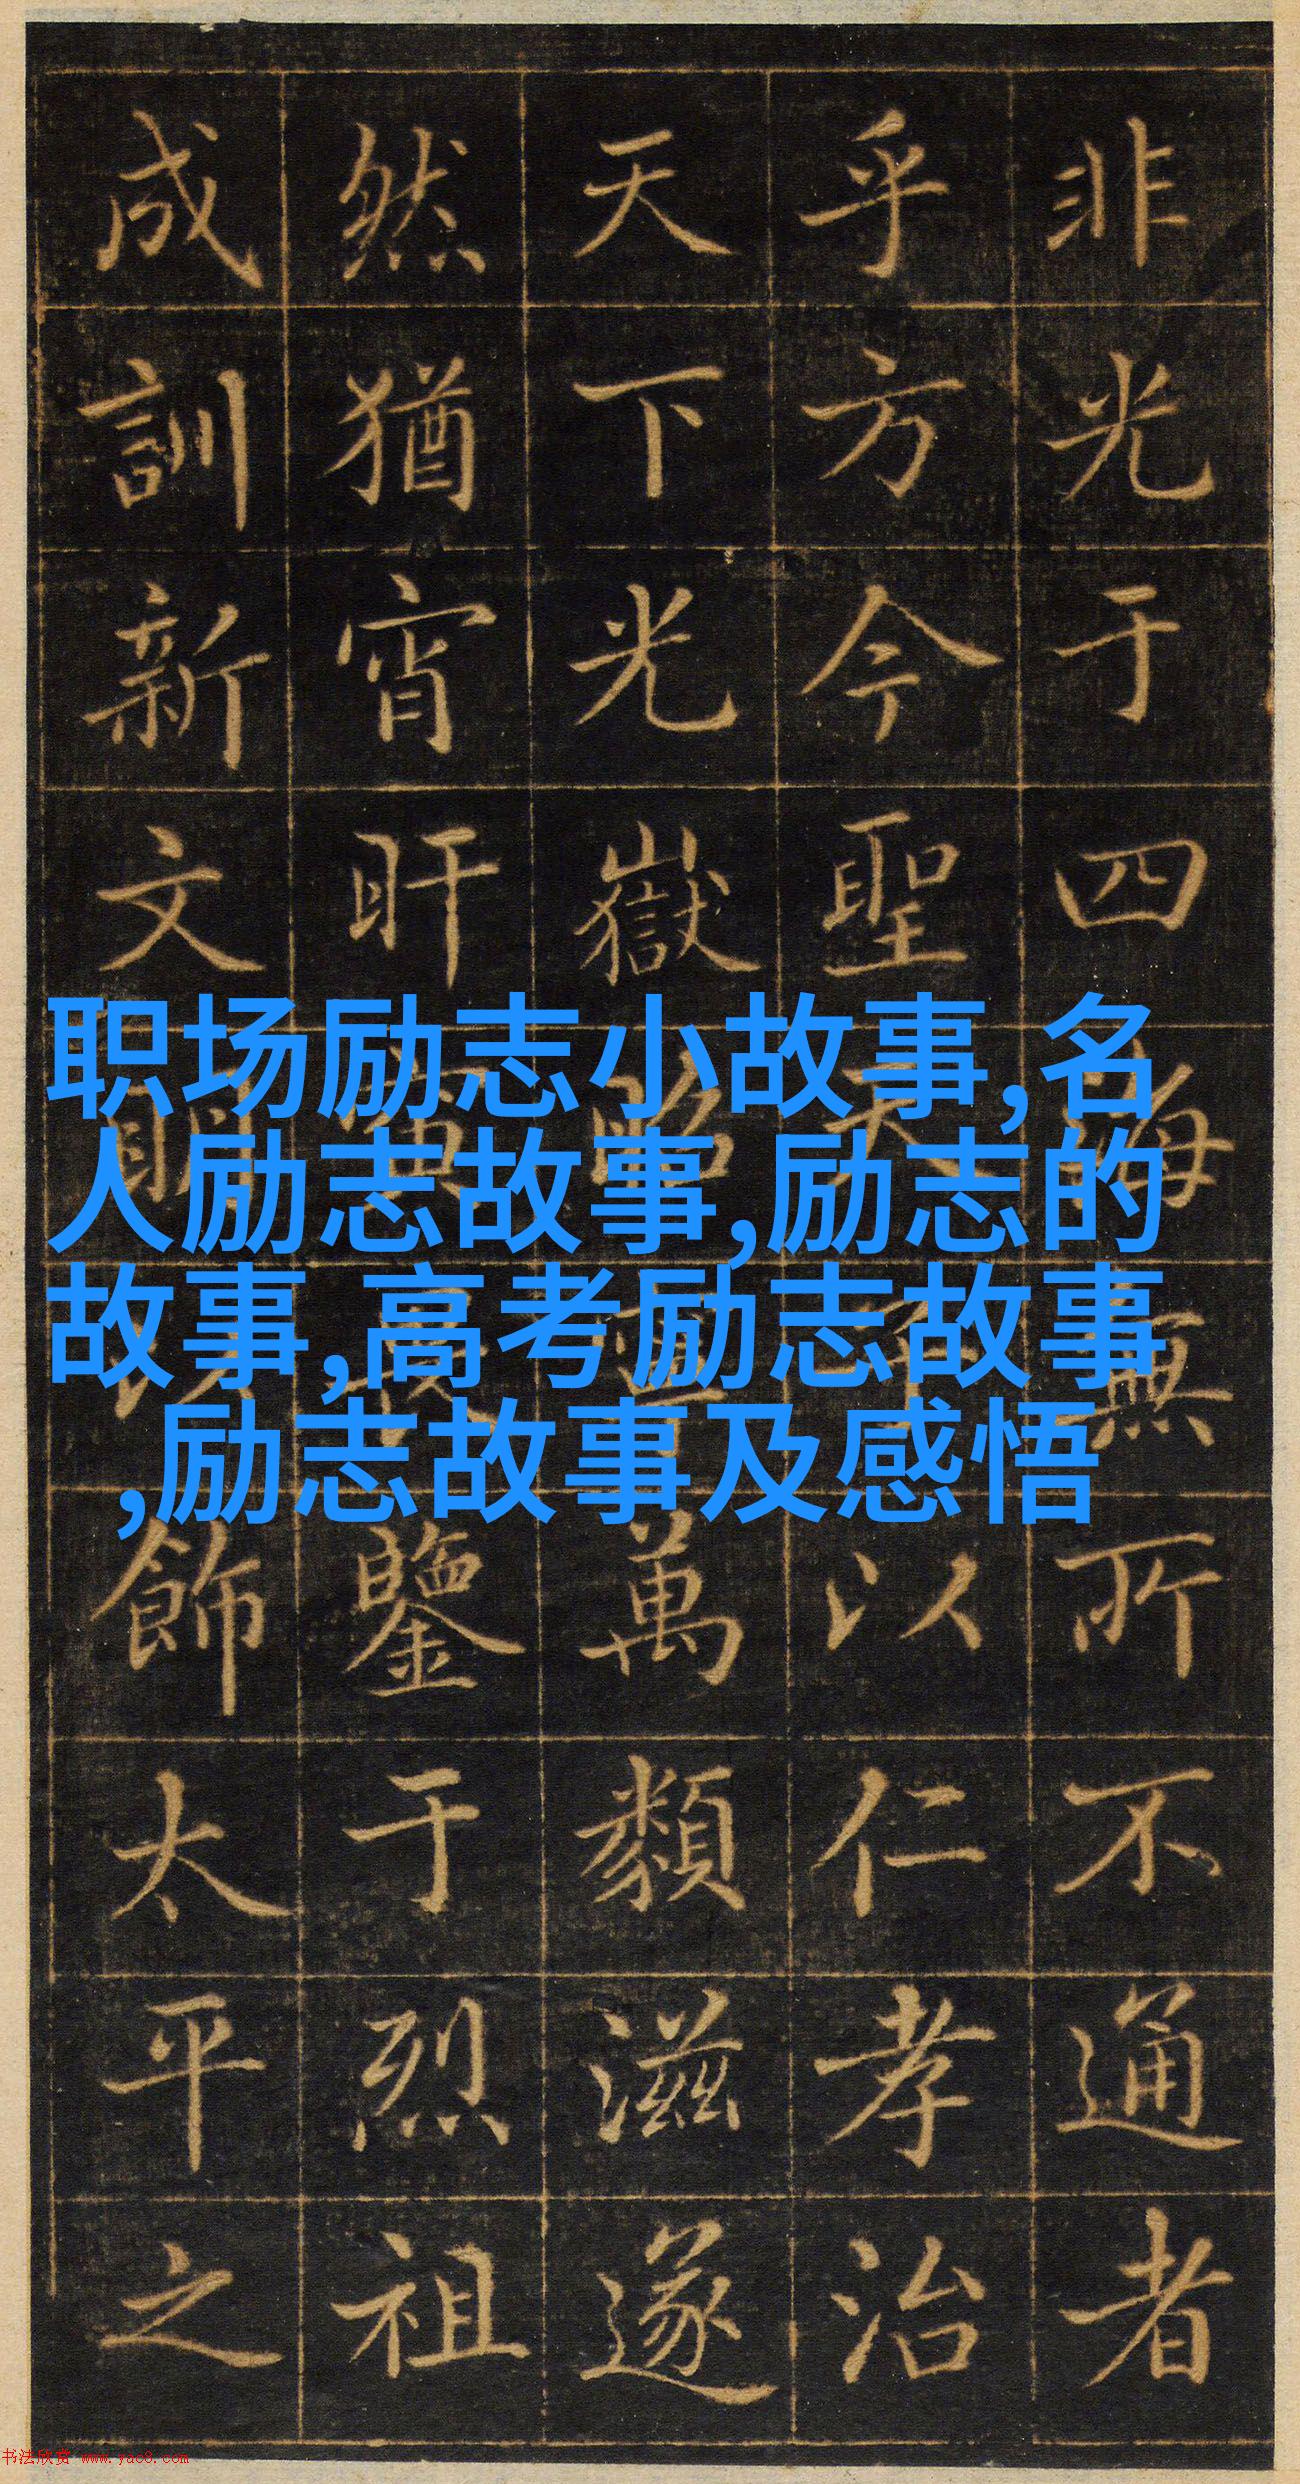 非光于四海無所不通者
乎方今聖天子以仁孝治
天下光嶽昭萬類滋遂
然猶宵旰寅畏鑒于烈祖
成訓新文明以飾太平之
职场励志小故事,名
人励志故事,励志的
故事,高考励志故事
,励志故事及感悟
书法欣赏 www.yac8.com